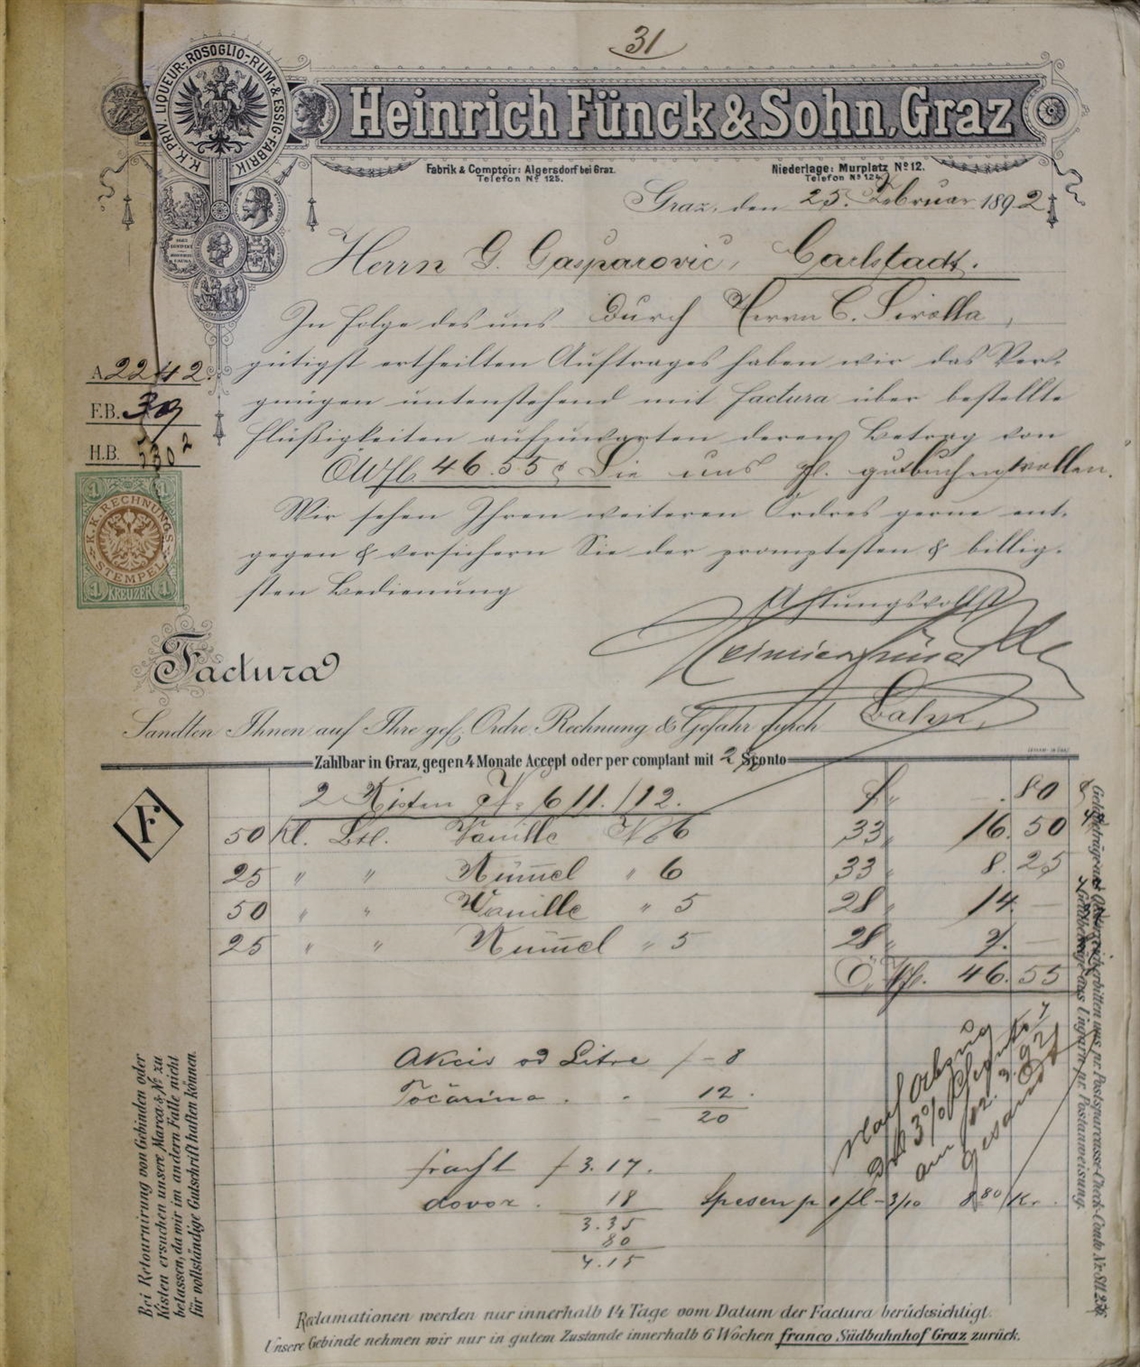 31
K.K. PRIV. LIQUEUR-, ROSOGLIO-, RUM- & ESSIG-FABRIK
Heinrich Fünck & Sohn, Graz
Fabrik & Comptoir: Algersdorf bei Graz.
Telefon Nº 125.
Niederlage: Murplatz Nº 12.
Telefon Nº 124.
Graz, den 25. Februar 1892.
Herrn G. Gasparović, Carlstadt.
In Folge des uns durch Herrn C.
gütigst ertheilten Auftrages haben wir das Ver-
gnügen untenstehend mit Factura über bestellte
Flüßigkeiten aufzuwarten deren Betrag von
ÖWfl. 46.55 Sie uns gutbuchen wollen.
Wir sehen Ihren weiteren Ordres gerne ent-
gegen & versichern Sie der promptesten & billig-
sten Bedienung
Achtungsvollst
A 2242.
F.B. 39
H.B.
1 K.K. RECHNUNGS STEMPEL 1
1 KREUZER 1
Factura
Sandten Ihnen auf Ihre gef. Ordre Rechnung & Gefahr durch Bahn.
Zahlbar in Graz, gegen 4 Monate Accept oder per comptant mit 2% Sconto
F
2 Kisten Nº 611./12. f „ . 80
50 kl. Btl. Vanille Nº 6 33 „ 16. 50
25 „ „ Kümmel „ 6 33 „ 8. 25
50 „ „ Vanille „ 5 28 „ 14. —
25 „ „ Kümmel „ 5 28 „ 7. —
Ö. Wfl. 46. 55
Akcis od Litre f – 8
Točarina . . 12.
20
fracht f 3.17.
dovoz . 18
3.35
80
4.15
Spesen p 1 fl – 3/10 8 80/ Kr.
nach Abzug
3% Sconto
am 12. 3. 92
gesandt
Bei Retournirung von Gebinden oder
Kisten ersuchen unsere Marca & Nº zu
belassen, da wir im andern Falle nicht
für vollständige Gutschrift haften können.
Geldbeträge aus Oesterreich erbitten uns pr. Postsparcasse-Check-Conto Nr.
Geldbeträge aus Ungarn pr. Postanweisung.
Reclamationen werden nur innerhalb 14 Tage vom Datum der Factura berücksichtigt.
Unsere Gebinde nehmen wir nur in gutem Zustande innerhalb 6 Wochen franco Südbahnhof Graz zurück.